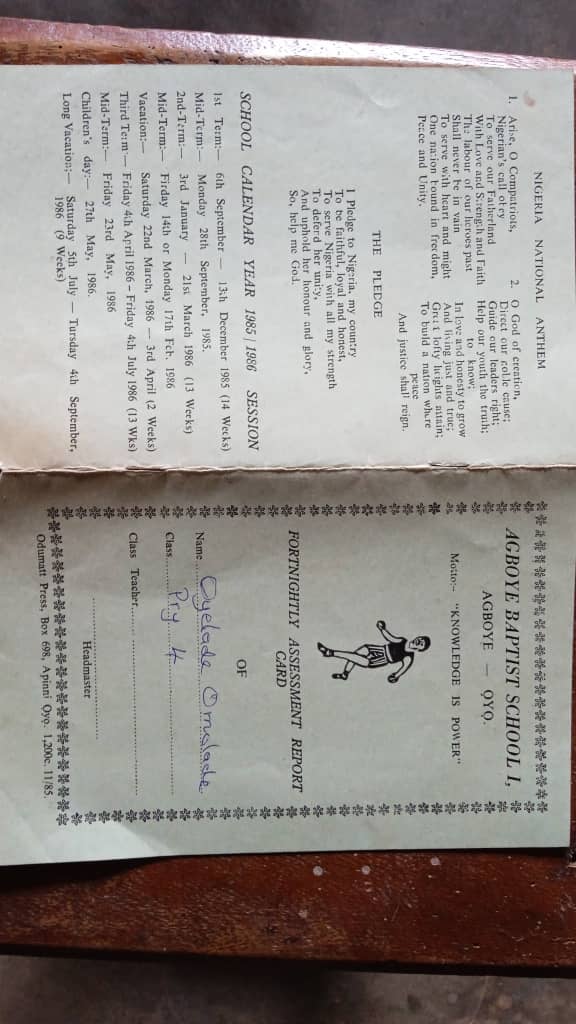 NIGERIA NATIONAL ANTHEM
1. Arise, O Compatriots,
Nigerian's call obey
To serve our Fatherland
With Love and Strength and Faith
The labour of our heroes past
Shall never be in vain
To serve with heart and might
One nation bound in freedom,
Peace and Unity.
2. O God of creation,
Direct our noble cause;
Guide our leaders right;
Help our youth the truth;
to know;
In love and honesty to grow
And living just and true;
Great lofty heights attain;
To build a nation where
peace
And justice shall reign.
THE PLEDGE
I Pledge to Nigeria, my country
To be faithful, loyal and honest,
To serve Nigeria with all my strength
To defend her unity,
And uphold her honour and glory,
So, help me God.
SCHOOL CALENDAR YEAR 1985/1986 SESSION
1st Term:— 6th September — 13th December 1985 (14 Weeks)
Mid-Term:— Monday 28th September, 1985.
2nd-Term:— 3rd January — 21st March 1986 (13 Weeks)
Mid-Term:— Firday 14th or Monday 17th Feb. 1986
Vacation:— Saturday 22nd March, 1986 — 3rd April (2 Weeks)
Third Term:— Friday 4th April 1986 – Friday 4th July 1986 (13 Wks)
Mid-Term:— Friday 23rd May, 1986
Children's day:— 27th May, 1986.
Long Vacation:— Saturday 5th July — Tuesday 4th September,
1986 (9 Weeks)
AGBOYE BAPTIST SCHOOL I,
AGBOYE — ỌYỌ.
Motto:- "KNOWLEDGE IS POWER"
FORTNIGHTLY ASSESSMENT REPORT
CARD
OF
Name Oyelade Omolade
Class Pry 4
Class Teacher
Headmaster
Odumatt Press, Box 698, Apinni Oyo. 1,200c. 11/85.